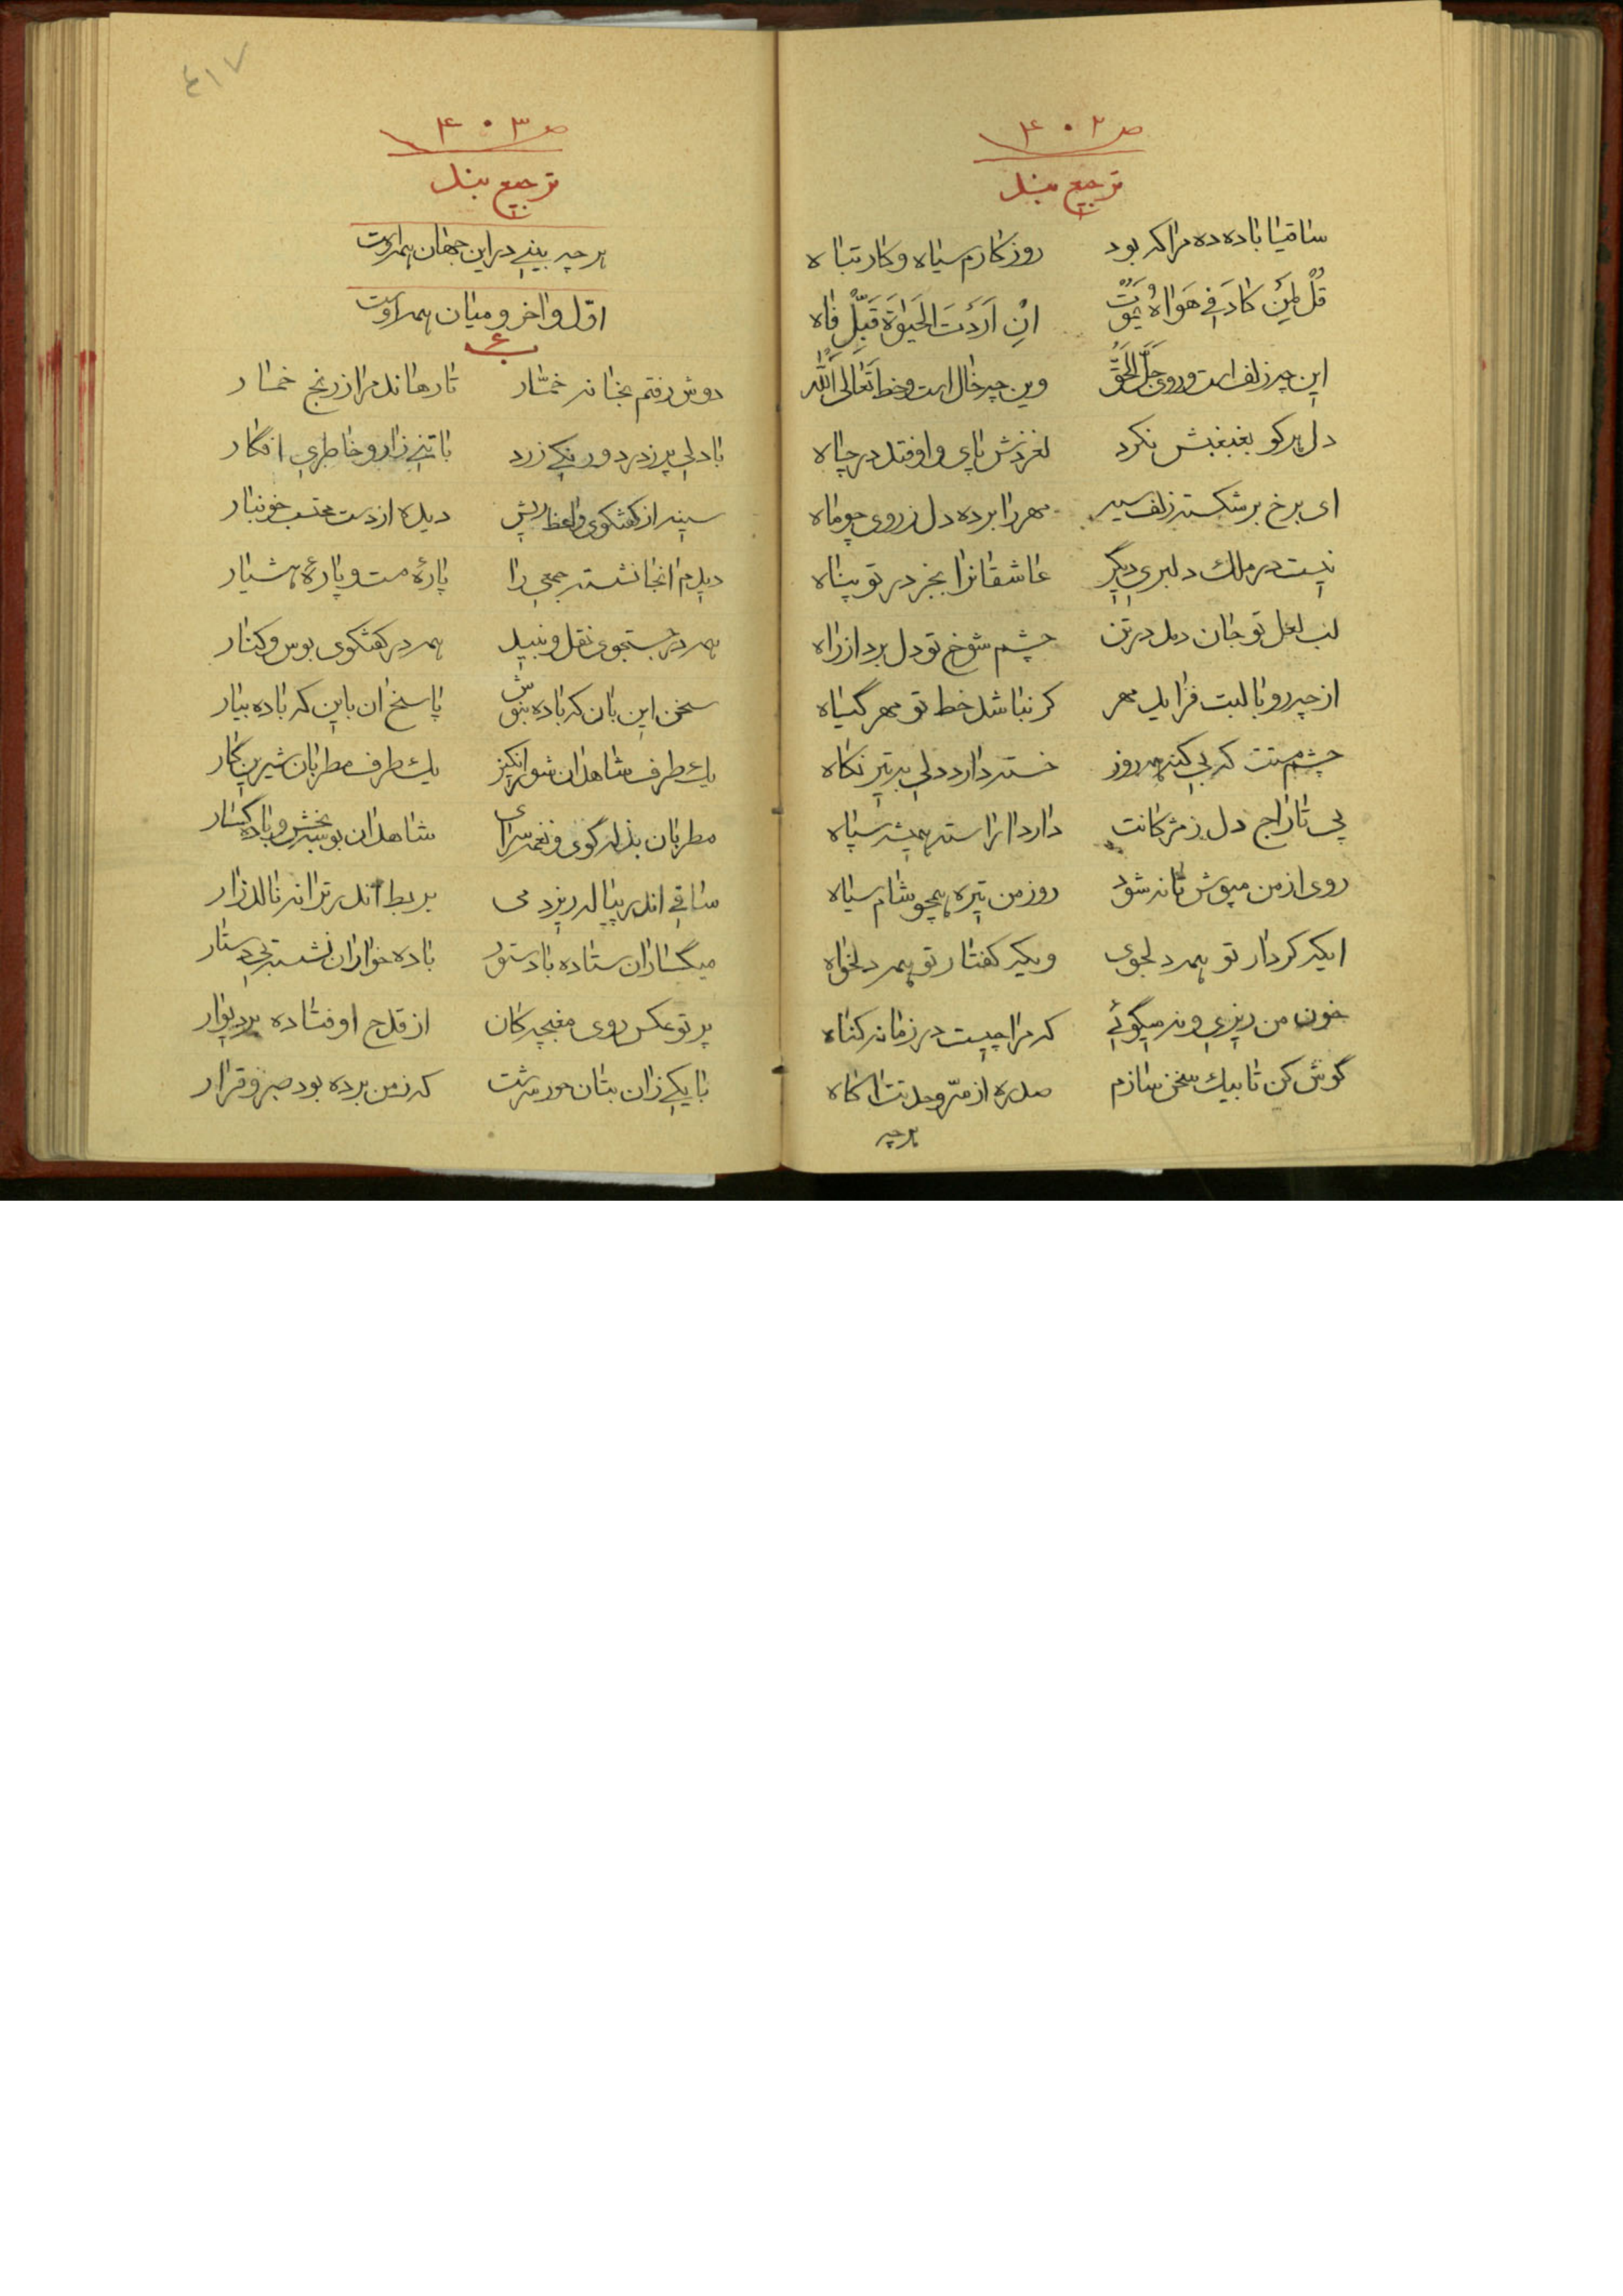 ص ۴۰۲
ترجیع بند
ساقیا باده ده مرا که بود روزکارم سیاه و کار تباه
قُلْ لِمَنْ کادَ فی هَواهُ یَمُوتُ اِنْ اَرَدْتَ الحَیوٰةَ قَبِّلْ فاه
این چه زلف است و روی جَلَّ الحَقّ وین چه خال است و خط تَعَالَی اللّٰه
دل هر کو بغبغبش نکرد لغزدش پای و اوفتد در چاه
ای برخ بر شکسته زلف سیه مهر را برده دل ز روی چو ماه
نیست در ملک دلبری دیگر عاشقانرا بجز در تو پناه
لب لعل تو جان دمد در تن چشم شوخ تو دل برد از راه
از چه رو با لبت فزاید مهر کر نباشد خط تو مهر گیاه
چشم مستت که بی کنه همه روز خسته دارد دلی به تیر نکاه
پی تاراج دل ز مژکانت دارد اراسته همیشه سپاه
روی از من مپوش تا نه شود روز من تیره همچو شام سیاه
ایکه کردار تو همه دلجوی ویکه کفتار تو همه دلخواه
خون من ریزی و نه میگوئی که مرا چیست در زمانه کناه
کوش کن تا بیک سخن سازم صد ره از سرّ وحدتت اکاه
هر چه
٤١٧
ص ۴۰۳
ترجیع بند
هر چه بینی در این جهان همه اوست
اوّل و اخر و میان همه اوست
دوش رفتم بخانه خمّار تا رهاند مرا ز رنج خمار
با دلی پر ز درد و رنکی زرد با تنی زار و خاطری افکار
سینه از کفتکوی واعظ ریش دیده از دست محتسب خونبار
دیدم انجا نشسته جمعی را پارۀ مست و پارۀ هشیار
همه در جستجوی نقل و نبید همه در کفتکوی بوس و کنار
سخن این بان که باده بنوش پاسخ ان باین که باده بیار
یک طرف شاهدان شورانکیز یک طرف مطربان شیرین کار
مطربان بذله گوی و نغمه سرای شاهدان بوسه بخش و باده کسار
ساقی اندر پیاله ریزد می بربط اندر ترانه نالد زار
میکساران ستاده با دستور باده خواران نشسته بی دستار
پرتو عکس روی مغبچه کان از قدح اوفتاده بر دیوار
با یکی زان بتان حور سرشت که ز من برده بود صبر و قرار